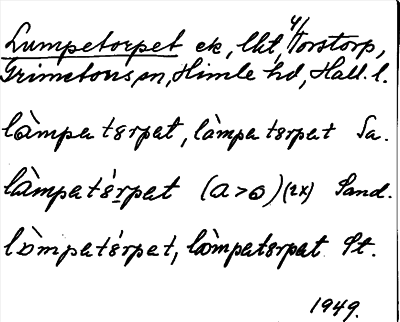 Lumpetorpet ek, lht, u/Torstorp,
Grimetons sn, Himle hd, Hall. l.
làmpatɛrpat, làmpatɛrpat Sa.
làmpatɛ́rpat (a>o) (2x) Sand.
lòmpatɛ́rpet, lòmpatɛrpat St.
1949.